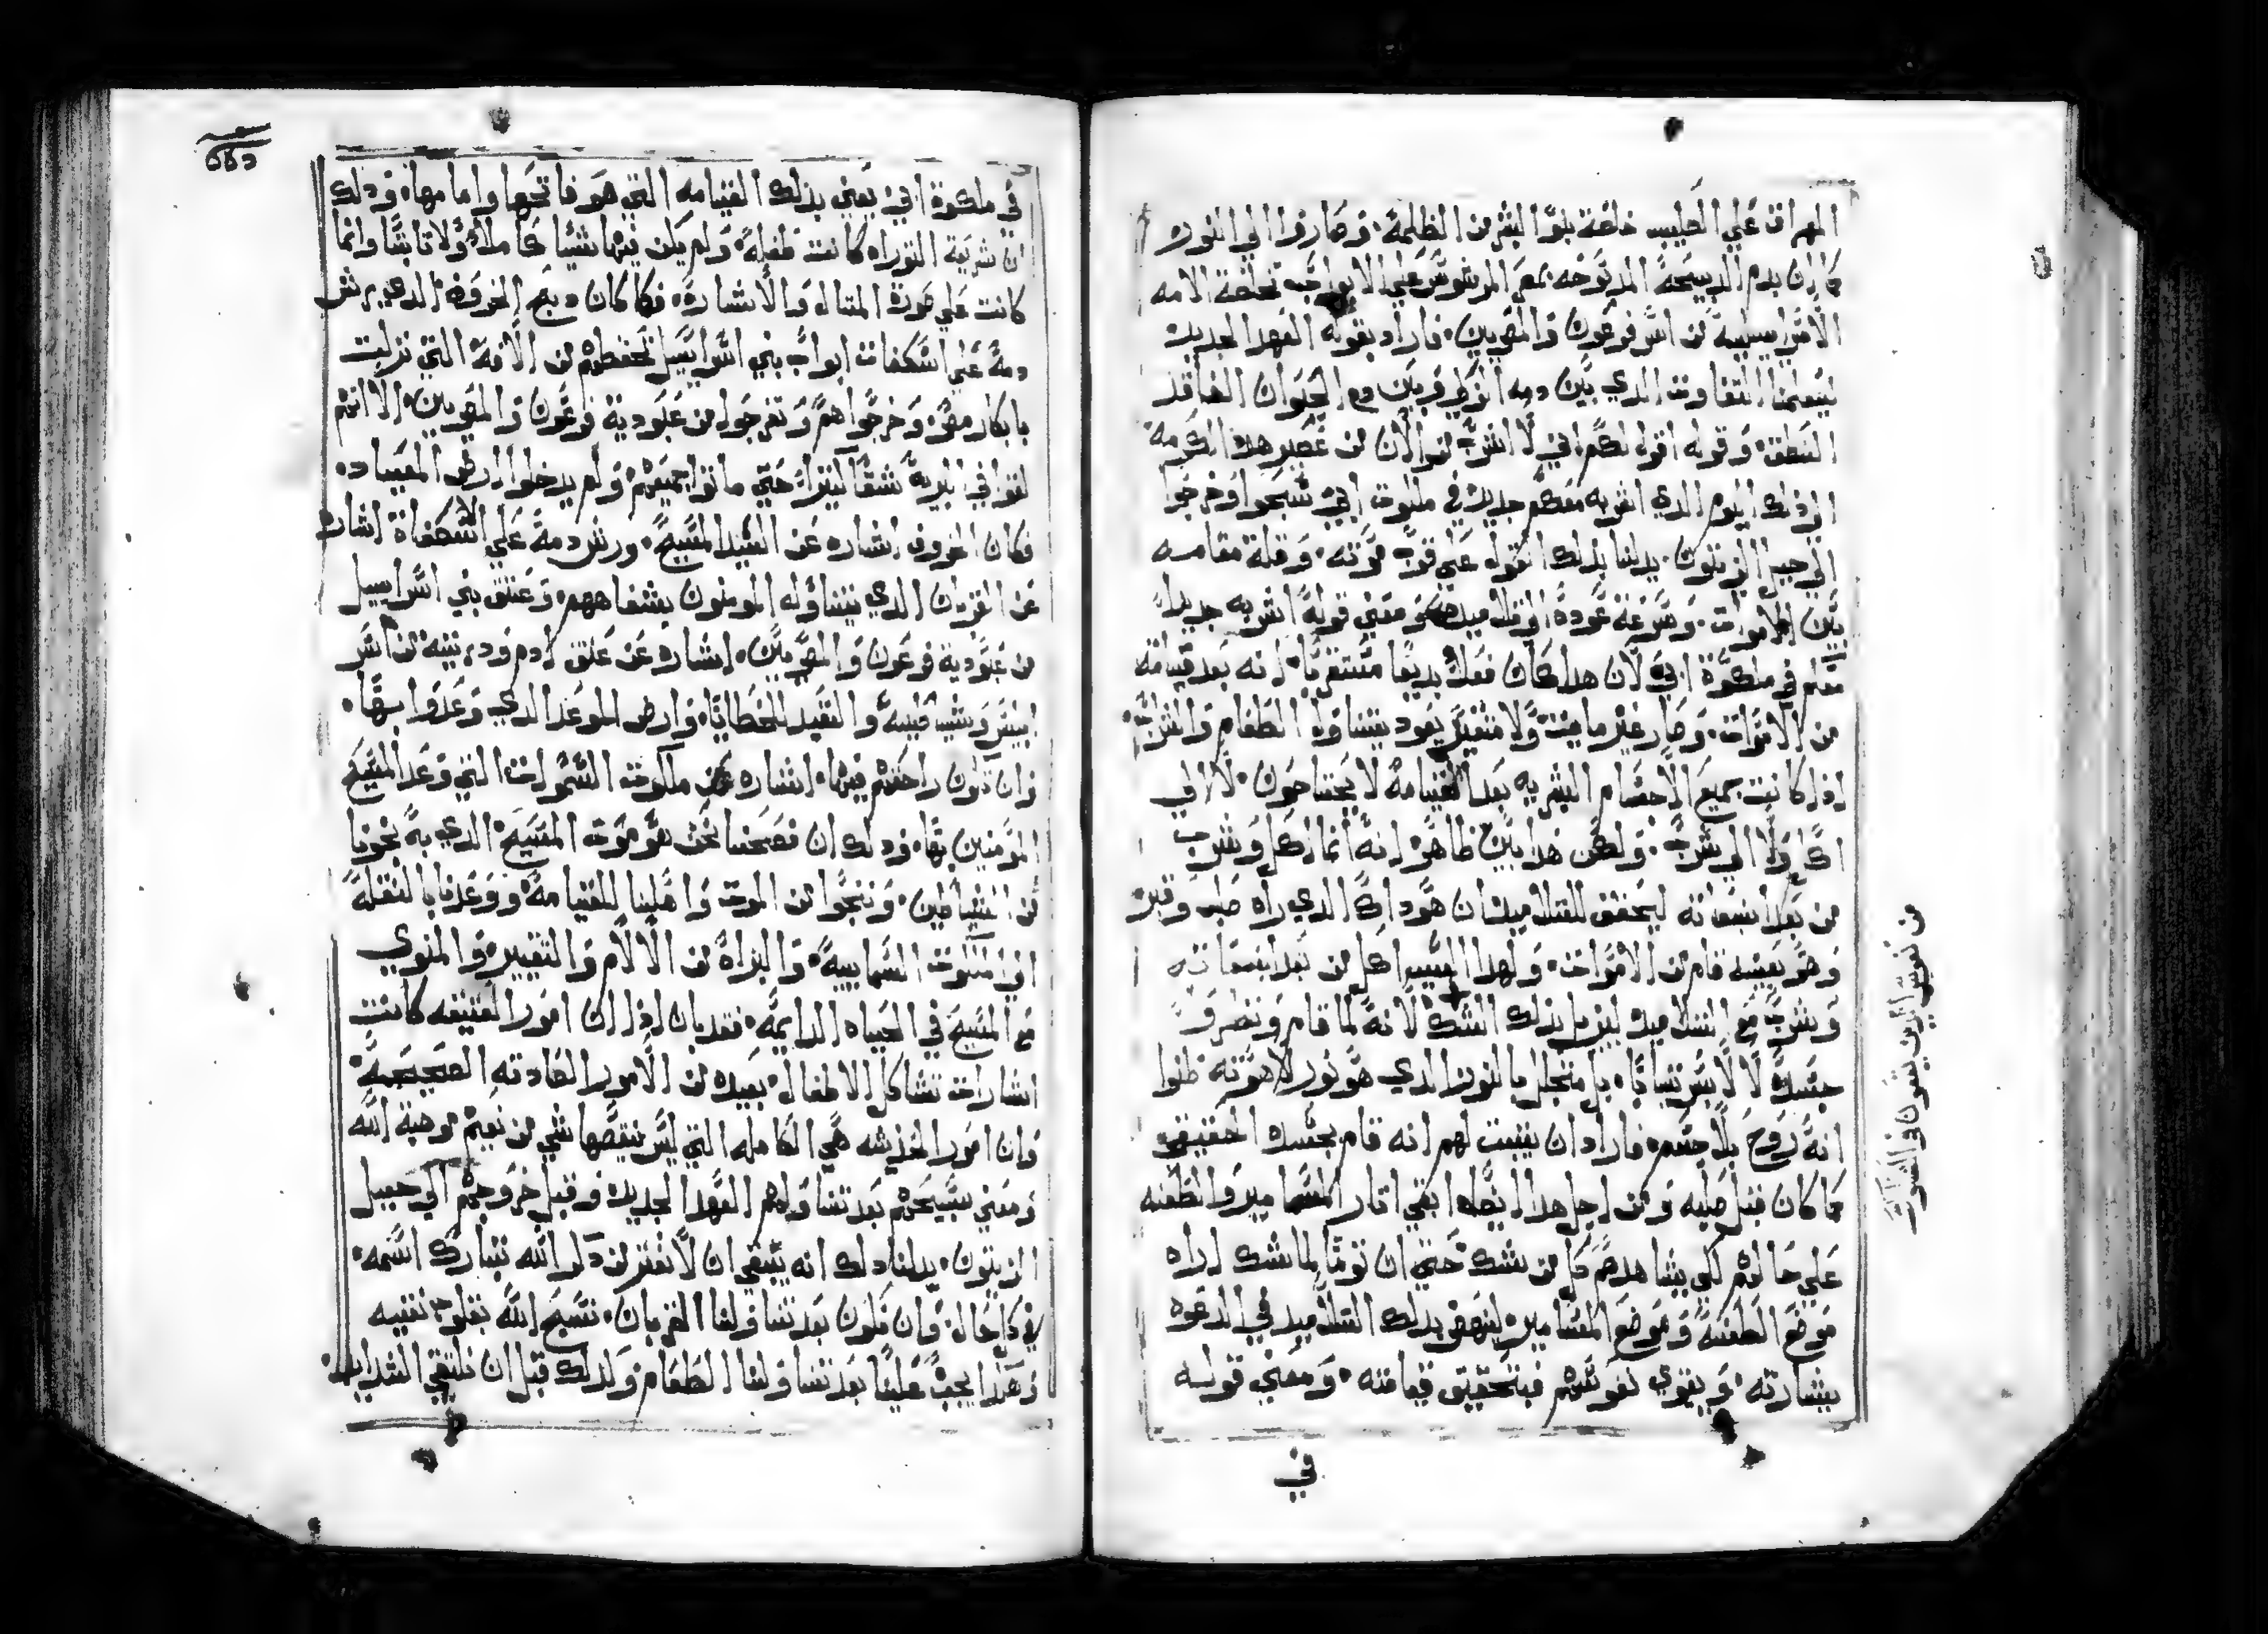 المهراق علي الصليب خلصة بلوا البشر من الظلمة. وصاروا الي النور
كما ان بدم الدبيحة المدبوحه بمصر المرشوش علي الابواب تخلصة الامه
الاسراييلية من اسر فرعون والمصريين. فاراد بقوله العهد الجديد
ليعلمنا التفاوت الدي بين دمه الزكي وبين دم الحيوان الفاقد
النطق. وقوله اقول لكم اني لا اشرب من الان من عصير هذا الكرمة
الي ذلك اليوم الدي اشربه معكم جديد في ملكوت ابي سبحوا وخرجوا
الي جبل الزيتون. يدلنا بذلك القول علي قرب موته. وقلة مقامه
بين الاموات. وسرعة عودة الي التلاميد ومعني قوله اشربه جديداً
معكم في ملكوة ابي لان هدا كان فعلا بديعا مستغربا. انه بعد قيامته
من الاموات. وصار غير مايت ولا متغير يعود يتناول الطعام والشراب.
اذا كانت جميع الاجسام البشريه بعد القيامة لا يحتاجون. لا الي
اكل ولا الي شرب. ولكن هدا بين ظاهر انه انما اكل وشرب
من بعد انبعاته ليحقق للتلاميد ان هو داك الدي راه صلب وقبر
وهو بعينه قام من الاموات. ولهدا السبب اكل من بعد انبعاته
وشرب مع التلاميد ليزيل بذلك الشك لانه لما قام وتصرف
جسده لا لابس تيابا. بل متجلل بالنور الدي هو نور لاهوته ظنوا
انه روح بلا جسم. فاراد ان يتبت لهم انه قام بجسده الحقيقي
كما كان قبل صلبه ومن اجل هدا ايضا ابقي اتار المسامير والطعنه
علي حالهم لكي يشاهدهم كل من يشك حتي ان توما لما شك اراه
موضع الطعنة وموضع المسامير. لينهض بدلك التلاميد في الدعوه
ببشارته. ويقوي نفوسهم فبتحقيق قيامته. ومعني قوله
في
من نفوس الدين يتقون في
في ملكوة ابي يعني بذلك القيامه التي هو فاتحها وامامها. ودلك
ان شريعة التوراه كانت طفلة. ولم يكن فيها شيئا كاملا ولا تابتا وانما
كانت علي صورة المتال والاشارة. فكما كان دبح الخروف الدي يرش
دمه علي اسكفات ابواب بني اسراييل تحفظهم من الافة التي نزلت
بابكار مصر. وخرجوا هم وتخرجوا من عبودية فرعون والمصريين. الا انهم
لقوا في البرية شقا كثيرا حتي ماتوا جميعهم ولم يدخلوا ارض الميعاد
فكان الخروف اشاره عن السيد المسيح. ورش دمة علي الاسكفاة اشاره
عن القربان الدي يتناوله المومنون بشفاههم. وعتق بني اسراييل
من عبودية فرعون والمصريين. اشاره عن عتق ادم ودريته من اسر
ابليس وشياطينه والتقيد للخطايا. وارض الموعد الدي وعدوا بها.
وان تكون راحتهم فيها. اشاره عن ملكوت السموات التي وعد المسيح
المومنين بها. ودلك ان فصحنا نحن هو موت المسيح الدي به نجونا
من الشياطين. وننجوا من الموت واهلنا للقيامة. ووعدنا بالنقلة
الي ملكوت السماييه. والبراة من الالام والتغيير. والمتوي
مع المسيح في الحياه الدايمة. فقد بان اذا ان امور العتيقه كانت
اشارات تشاكل الاطفال. بعيده من الامور الصادقه الصحيحة.
وان امور الحديثه هي الكامله التي ليس ينقصها شي من نعيم موهبة الله
ومعني تسبيحهم بعد تناولهم العهد الجديد. وقبل خروجهم الي جبل
الزيتون. يدلنا دلك انه ينبغي ان لا نفتر من دكر الله تبارك اسمه.
في كل حال. وان نكون بعد تناولنا القربان. نسبح الله بقلوب نقيه
وهدا يجب علينا بعد تناولنا الطعام وكدلك قبل ان نلتقي الشدايد.